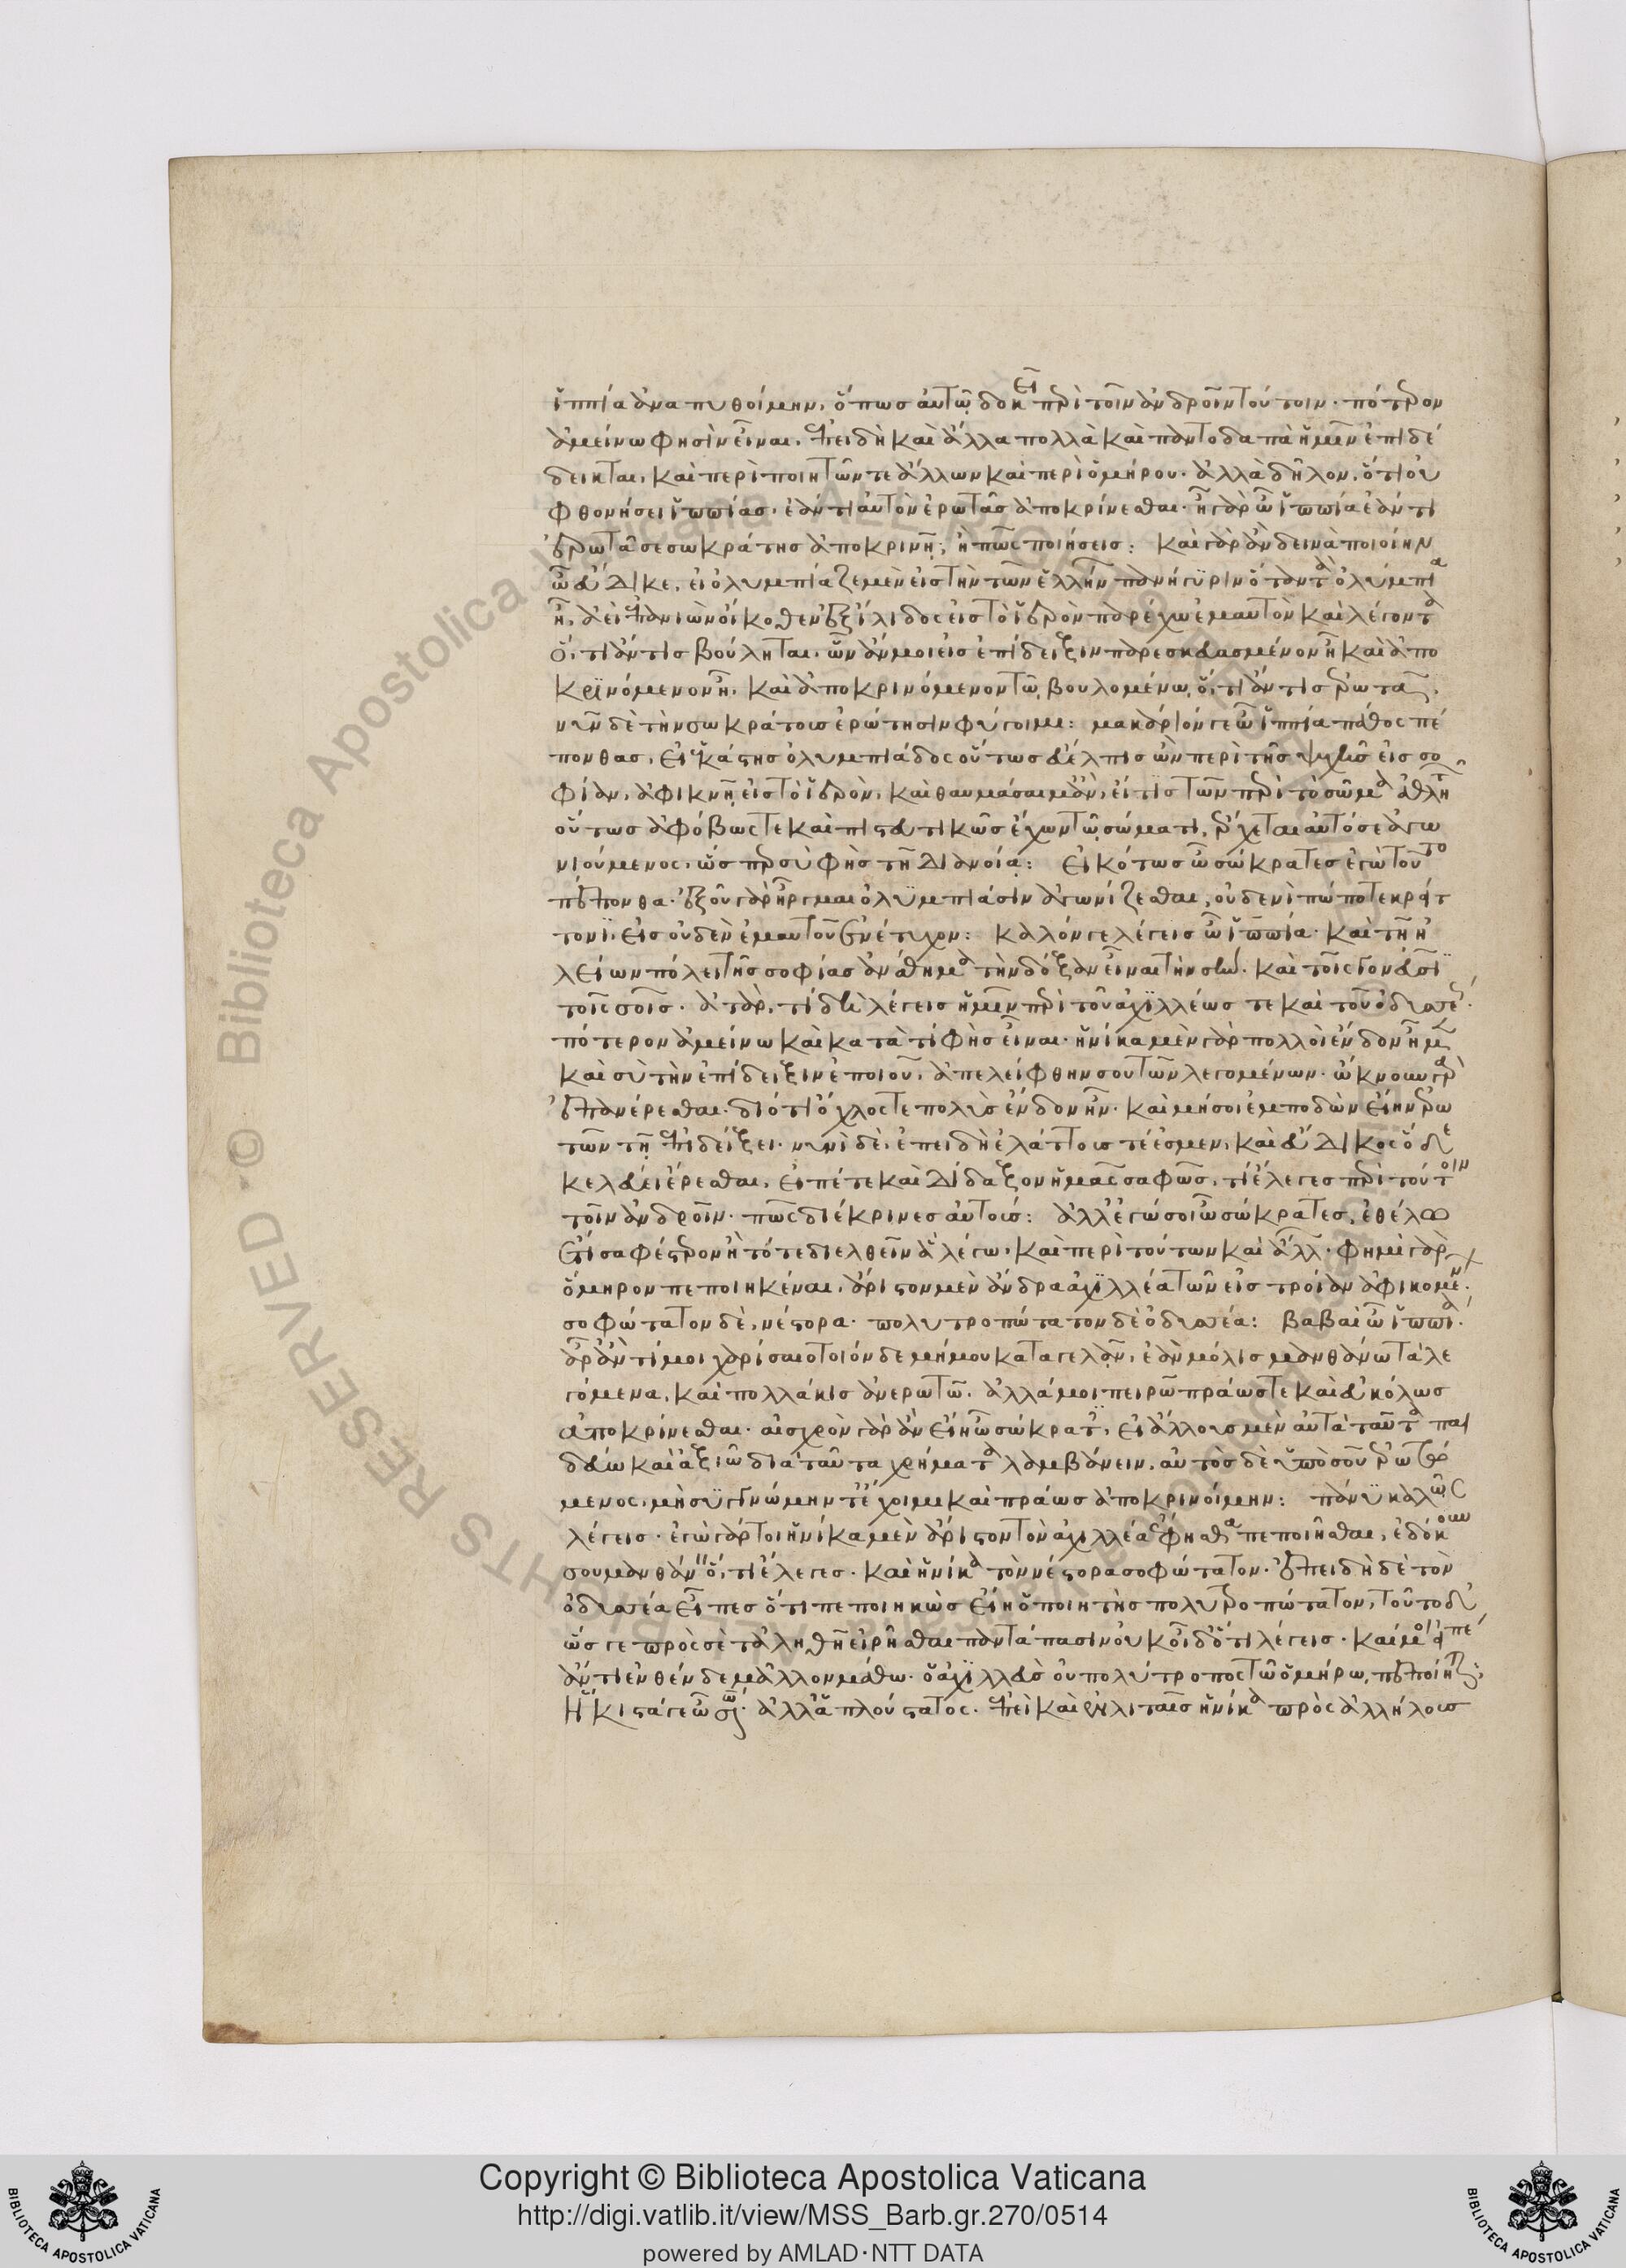 ἱππία ἀναπυθοίμην, ὅπως αὐτῷ δοκεῖ περὶ τοῖν ἀνδροῖν τούτοιν. πότερον
ἀμείνω φησὶν εἶναι, ἐπειδὴ καὶ ἄλλα πολλὰ καὶ παντοδαπὰ ἡμῖν ἐπιδέ
δεικται, καὶ περὶ ποιητῶν τε ἄλλων καὶ περὶ ὁμήρου. ἀλλὰ δῆλον, ὅτι οὐ
φθονήσει ἱππίας, ἐάν τι αὐτὸν ἐρωτᾶς ἀποκρίνεσθαι. ἦ γὰρ ὦ ἱππία ἐάν τι
ἐρωτᾶ σε σωκράτης ἀποκρινῇ; ἢ πῶς ποιήσεις: καὶ γὰρ ἂν δεινὰ ποιοίην
ὦ εὔδικε, εἰ ὀλυμπίαζε μὲν εἰς τὴν τῶν ἑλλήνων πανήγυριν ὅταν τὰ ὀλύμπια
ᾖ, ἀεὶ ἐπανιὼν οἴκοθεν ἐξ ἤλιδος εἰς τὸ ἱερὸν παρέχω ἐμαυτὸν καὶ λέγοντα
ὅ, τι ἄν τις βούληται, ὧν ἄν μοι εἰς ἐπίδειξιν παρεσκευασμένον ᾖ καὶ ἀπο
κρινόμενον ᾖ, καὶ ἀποκρινόμενον τῷ βουλομένῳ ὅ, τι ἄν τις ἐρωτᾷ,
νῦν δὲ τὴν σωκράτους ἐρώτησιν φύγοιμι: μακάριόν γε ὦ ἱππία πάθος πέ
πονθας, εἰ ἑκάστης ὀλυμπιάδος οὕτως εὔελπις ὢν περὶ τῆς ψυχῆς εἰς σο
φίαν, ἀφικνῇ εἰς τὸ ἱερόν, καὶ θαυμάσαιμ' ἄν, εἴ τις τῶν περὶ τὸ σῶμα ἀθλητῶν
οὕτως ἀφόβως τε καὶ πιστευτικῶς ἔχων τῷ σώματι, ἔρχεται αὐτόσε ἀγω
νιούμενος, ὥσπερ σὺ φῂς τῇ διανοίᾳ: εἰκότως ὦ σώκρατες ἐγὼ τοῦτο
πέπονθα. ἐξ οὗ γὰρ ἦργμαι ὀλυμπιάσιν ἀγωνίζεσθαι, οὐδενὶ πώποτε κρείτ
τονι εἰς οὐδὲν ἐμαυτοῦ ἐνέτυχον: καλόν γε λέγεις ὦ ἱππία. καὶ τῇ ἠ
λείων πόλει τῆς σοφίας ἀνάθημα τὴν δόξαν εἶναι τὴν σήν. καὶ τοῖς γονεῦσι
τοῖς σοῖς. ἀτὰρ, τί δὴ λέγεις ἡμῖν περὶ τοῦ ἀχιλλέως τε καὶ τοῦ ὀδυσσέως.
πότερον ἀμείνω καὶ κατὰ τί φὴς εἶναι. ἡνίκα μὲν γὰρ πολλοὶ ἔνδον ἦμεν
καὶ σὺ τὴν ἐπίδειξιν ἐποιοῦ, ἀπελείφθην σου τῶν λεγομένων. ὤκνουν γὰρ
ἐπανέρεσθαι. διότι ὄχλος τε πολὺς ἔνδον ἦν. καὶ μή σοι ἐμποδὼν εἴην ἐρω
τῶν τῇ ἐπιδείξει. νυνὶ δὲ, ἐπειδὴ ἐλάττους τέ ἐσμεν, καὶ εὔδικος ὅδε
κελεύει ἔρεσθαι, εἰπέ τε καὶ δίδαξον ἡμᾶς σαφῶς, τί ἔλεγες περὶ τούτοιν
τοῖν ἀνδροῖν. πῶς διέκρινες αὐτούς: ἀλλ' ἐγώ σοι ὦ σώκρατες, ἐθέλω
ἔτι σαφέστερον ἢ τότε διελθεῖν ἃ λέγω. καὶ περὶ τούτων καὶ ἄλλων. φημὶ γὰρ
ὅμηρον πεποιηκέναι, ἄριστον μὲν ἄνδρα ἀχιλλέα τῶν εἰς τροίαν ἀφικομένων.
σοφώτατον δὲ, νέστορα. πολυτροπώτατον δὲ ὀδυσσέα: βαβαὶ ὦ ἱππία.
ἆρ' ἄν τί μοι χαρίσαιο τοιόνδε μή μου καταγελᾶν, ἐὰν μόλις μανθάνω τὰ λε
γόμενα, καὶ πολλάκις ἀνερωτῶ. ἀλλά μοι πειρῶ πράως τε καὶ εὐκόλως
ἀποκρίνεσθαι. αἰσχρὸν γὰρ ἂν εἴη ὦ σώκρατες, εἰ ἄλλους μὲν αὐτὰ ταῦτα παι
δεύω καὶ ἀξιῶ διὰ ταῦτα χρήματα λαμβάνειν, αὐτὸς δὲ ὑπὸ σοῦ ἐρωτώ
μενος, μὴ συγγνώμην τ' ἔχοιμι καὶ πράως ἀποκρινοίμην: πάνυ καλῶς
λέγεις. ἐγὼ γάρ τοι ἡνίκα μὲν ἄριστον τὸν ἀχιλλέα ἔφησθα πεποιῆσθαι, ἐδόκουν
σου μανθάνειν ὅ, τι ἔλεγες. καὶ ἡνίκα τὸν νέστορα σοφώτατον. ἐπειδὴ δὲ τὸν
ὀδυσσέα εἶπες ὅτι πεποιηκὼς εἴη ὁ ποιητὴς πολυτροπώτατον, τοῦτο δ'
ὥς γε πρὸς σὲ τἀληθῆ εἰρῆσθαι παντάπασιν οὐκ οἶδ' ὅ τι λέγεις. καί μοι εἰπέ
ἄν τι ἐνθένδε μᾶλλον μάθω. ὁ ἀχιλλεὺς οὐ πολύτροπος τῷ ὁμήρῳ πεποίηται;
ἥκιστά γε ὦ σώκρατες. ἀλλ' ἁπλούστατος. ἐπεὶ καὶ ἐν λιταῖς ἡνίκα πρὸς ἀλλήλους
Copyright © Biblioteca Apostolica Vaticana
http://digi.vatlib.it/view/MSS_Barb.gr.270/0514
powered by AMLAD·NTT DATA
BIBLIOTECA APOSTOLICA VATICANA
BIBLIOTECA APOSTOLICA VATICANA